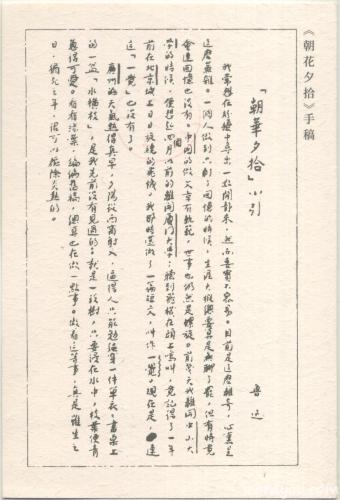 《朝花夕拾》手稿
「朝華夕拾」小引
魯迅
我常想在紛擾中尋出一點閒靜來，然而委實不容易。目前是這麼離奇，心裏是
這麼蕪雜。一個人做到只剩了回憶的時候，生涯大概總要算是無聊了罷，但有時竟
會連回憶也沒有。中國的做文章有軌範，世事也仍然是螺旋。前幾天我離開中山大
學的時候，便想起四個月以前的離開廈門大學；聽到飛機在頭上鳴叫，竟記得了一年
前在北京城上日日旋繞的飛機。我那時還做了一篇短文，叫做一覺。現在是，連
這「一覺」也沒有了。
廣州的天氣熱得真早，夕陽從西窗射入，逼得人只能勉強穿一件單衣。書桌上
的一盆「水橫枝」，是我先前沒有見過的：就是一段樹，只要浸在水中，枝葉便青
葱得可愛。看看綠葉，編編舊稿，總算也在做一點事。做着這等事，真是雖生之
日，猶死之年，很可以驅除炎熱的。